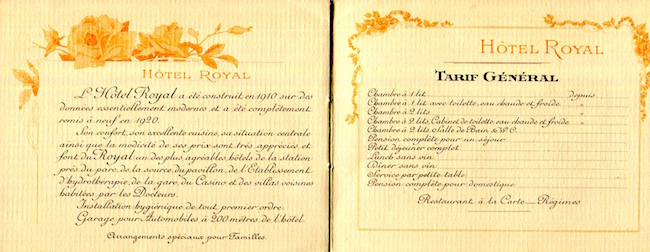 HÔTEL ROYAL
L'Hôtel Royal a été construit en 1910 sur des
données essentiellement modernes et a été complètement
remis à neuf en 1920.
Son confort, son excellente cuisine, sa situation centrale
ainsi que la modicité de ses prix sont très appréciés et
font du Royal un des plus agréables hôtels de la station
près du parc, de la source, du pavillon, de l'Etablissement
d'hydrothérapie, de la gare, du Casino et des villas voisines
habitées par les Docteurs.
Installation hygiénique de tout premier ordre.
Garage pour Automobiles à 200 mètres de l'hôtel.
Arrangements spéciaux pour Familles.
HÔTEL ROYAL
TARIF GÉNÉRAL
Chambre à 1 lit depuis
Chambre à 1 lit avec toilette, eau chaude et froide "
Chambre à 2 lits "
Chambre à 2 lits, Cabinet de toilette, eau chaude et froide "
Chambre à 2 lits, Salle de Bain & W.C. "
Pension complète pour un séjour
Petit déjeuner complet
Lunch sans vin
Dîner sans vin
Service par petite table
Pension complète pour domestique
Restaurant à la Carte _ Régimes